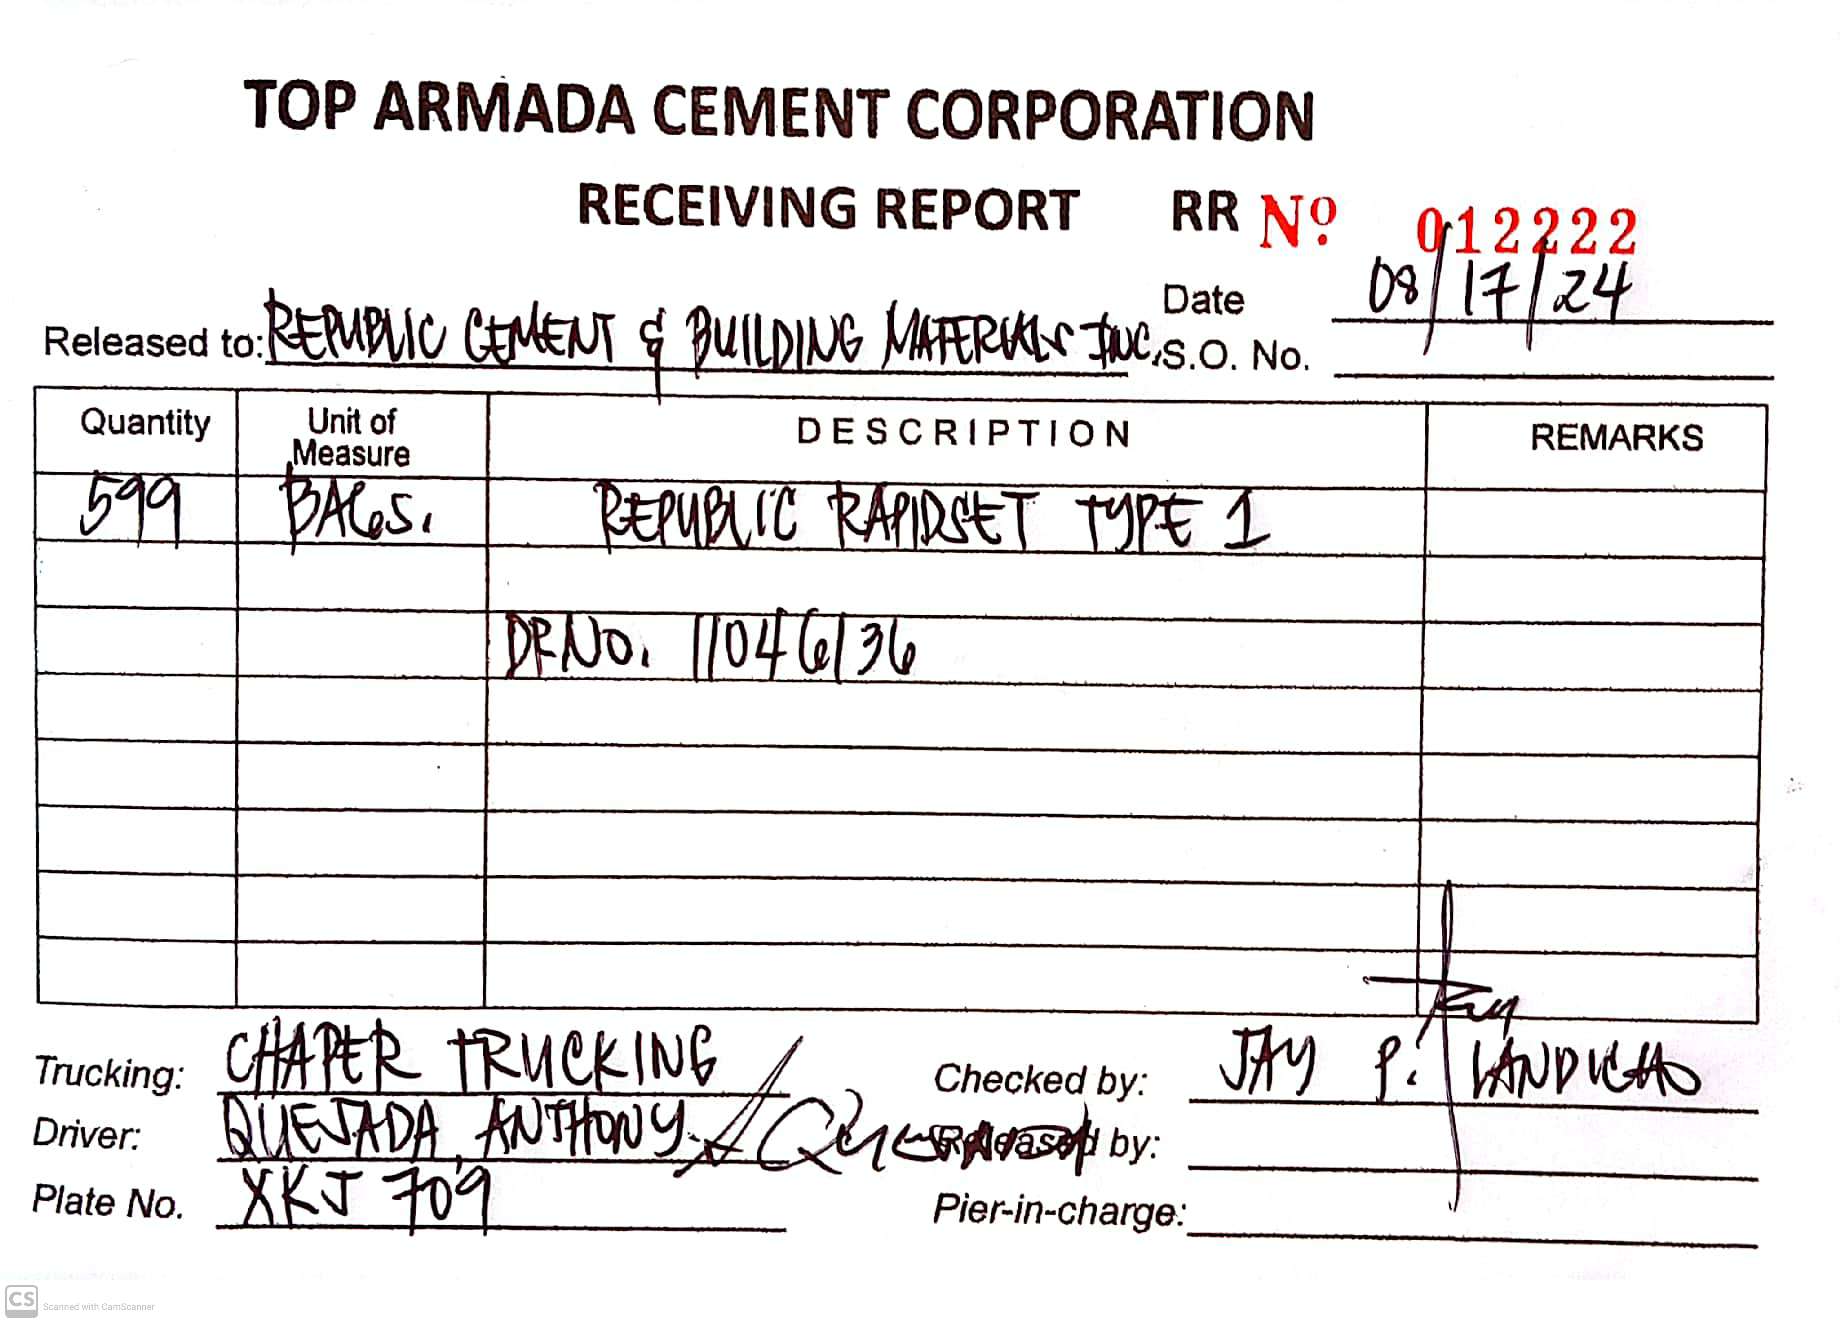 TOP ARMADA CEMENT CORPORATION
RECEIVING REPORT RR Nº 012222
Date 08/17/24
Released to: REPUBLIC CEMENT & BUILDING MATERIALS INC. S.O. No.
Quantity Unit of Measure DESCRIPTION REMARKS
599 BAGS. REPUBLIC RAPIDSET TYPE 1
DR NO. 11046136
Trucking: CHAPER TRUCKING Checked by: JAY P. LANDICHO
Driver: QUEJADA, ANTHONY Released by:
Plate No. XKJ 709 Pier-in-charge:
CS Scanned with CamScanner